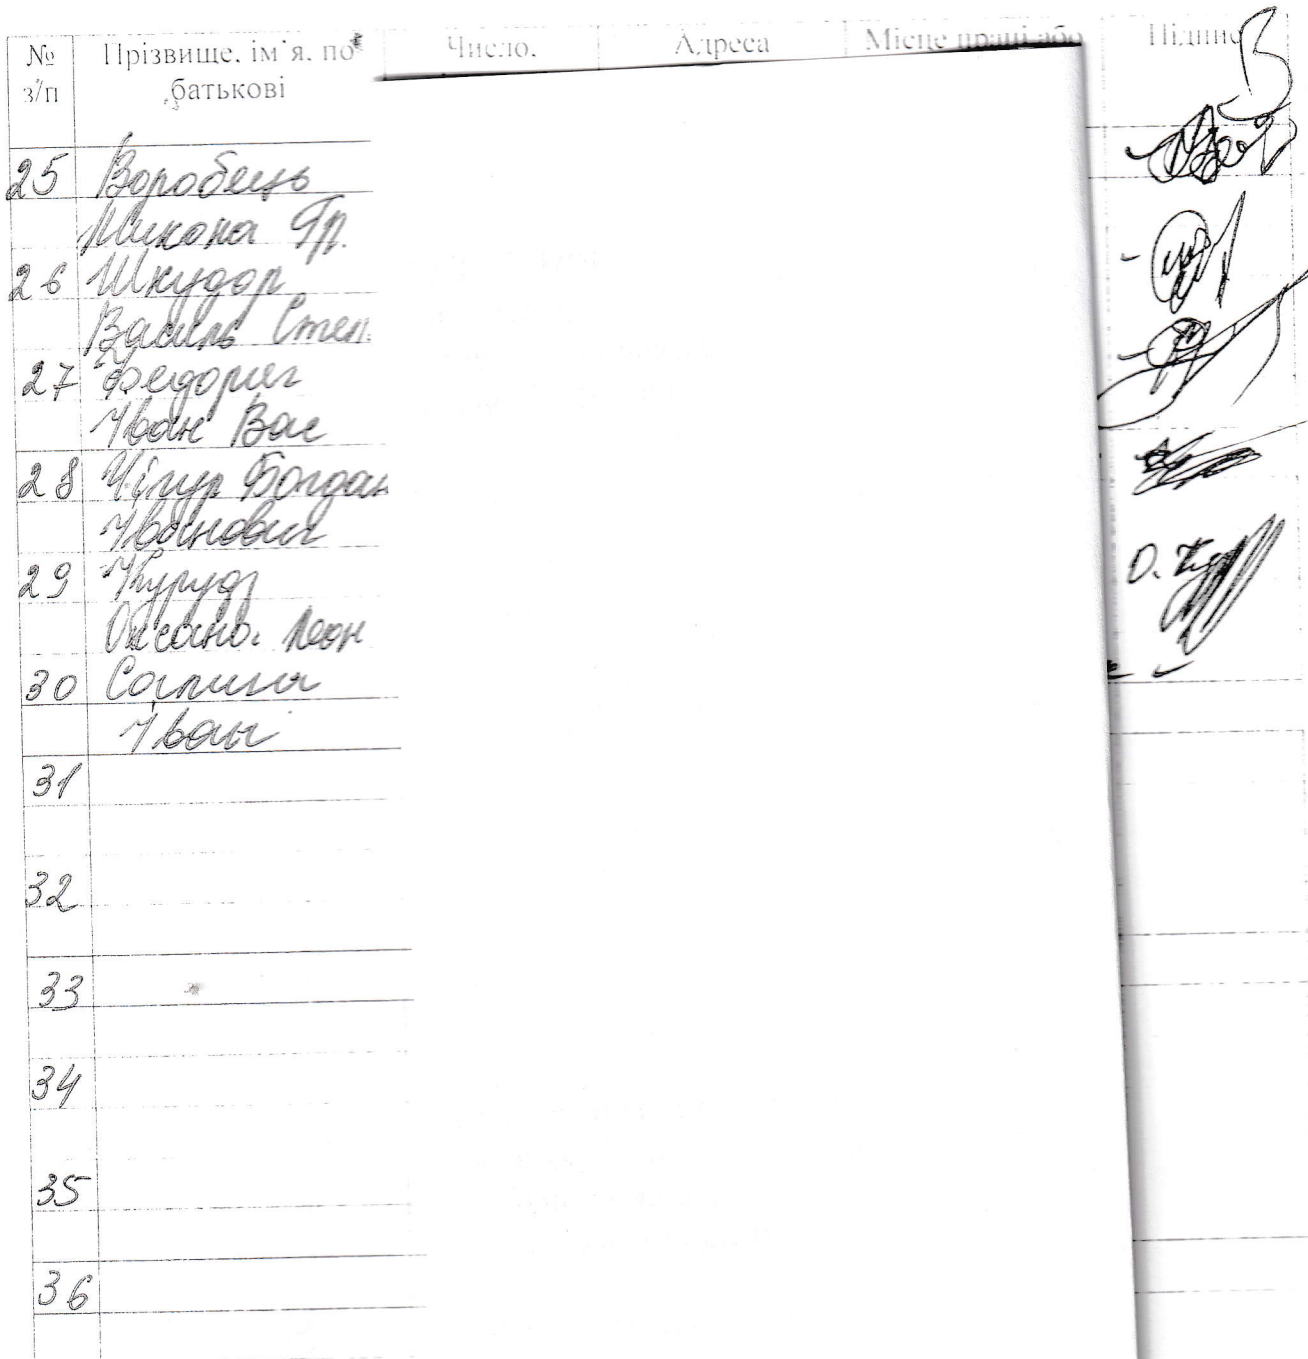 № з/п
Прізвище, ім'я, по батькові
Число,
Адреса
Місце праці або
Підпис
25 Воробець
Микола Гр.
26 Шкудор
Василь Степ.
27
Іван Вас
28 Чігур Богдан
Іванович
29 Курудз
Оксана Леон
30 Салига
Іван
31
32
33
34
35
36